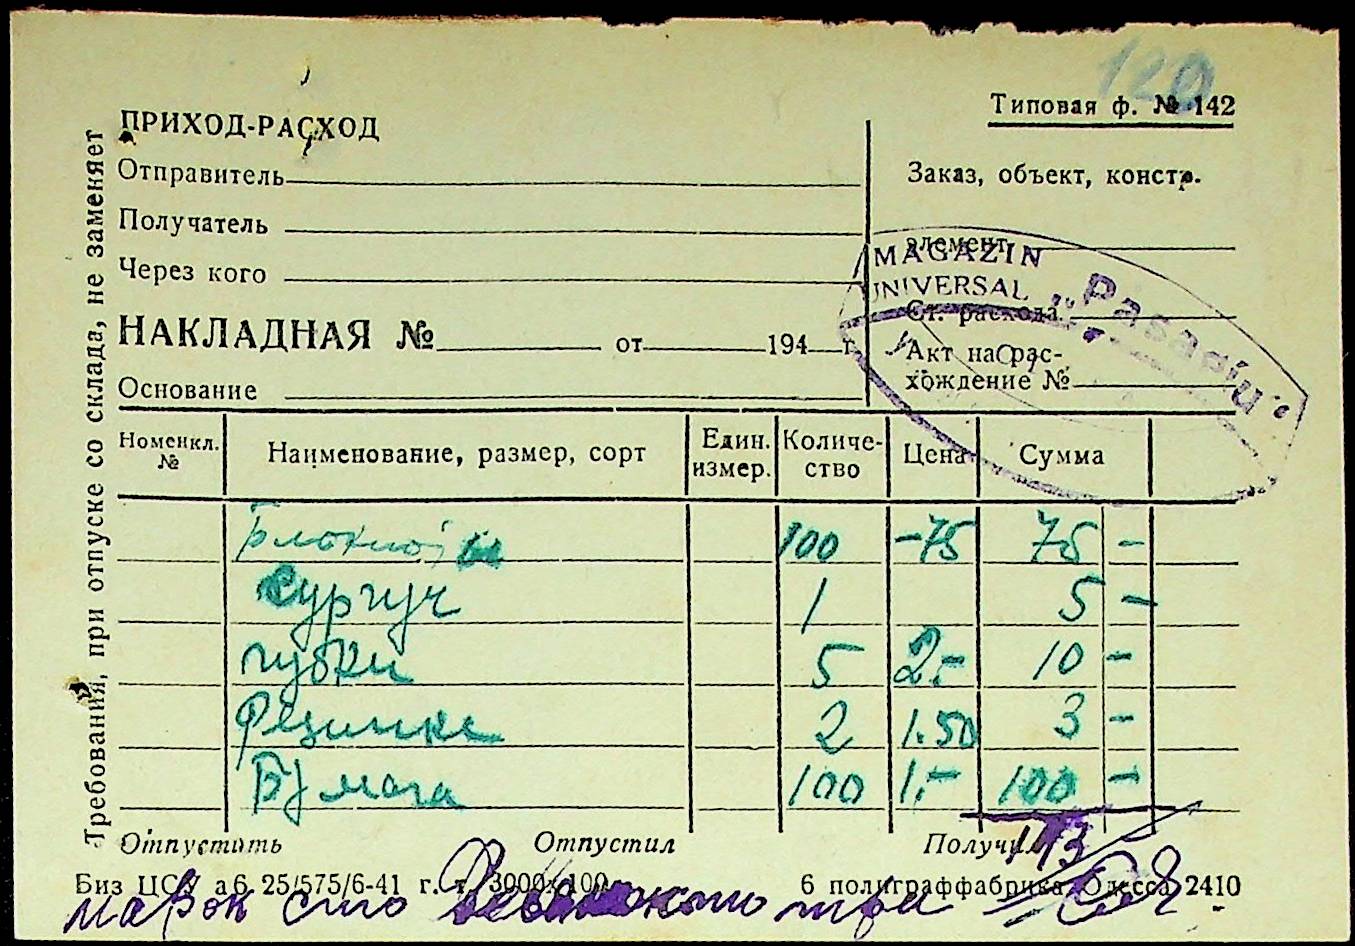 120
Типовая ф. № 142
ПРИХОД-РАСХОД
Отправитель
Получатель
Через кого
Заказ, объект, констр.
элемент
Ст. расхода
Акт на рас-
хождение №
MAGAZIN
UNIVERSAL
„Pasagiu"
НАКЛАДНАЯ № от 194 г.
Основание
Номенкл. № Наименование, размер, сорт Един. измер. Количе-ство Цена Сумма
Блокнот 100 -75 75 -
Сургуч 1 5 -
губки 5 2.- 10 -
Резинка 2 1.50 3 -
Бумага 100 1.- 100 -
193
Отпустить Отпустил Получил
Биз ЦСУ аб 25/575/6-41 г. т. 3000х100 6 полиграффабрика, Одесса 2410
марок сто девяносто три
Требования, при отпуске со склада, не заменяет